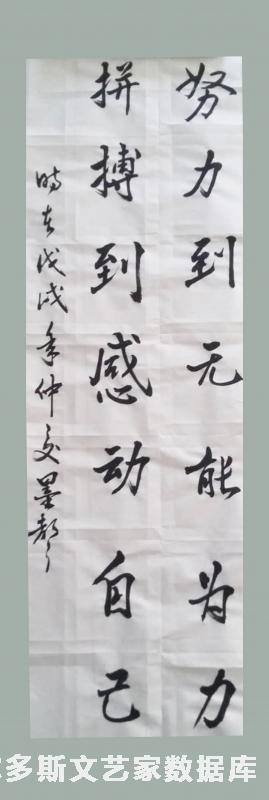 努力到无能为力
拼搏到感动自己
时在戊戌年仲夏墨都
多斯文艺家数据库